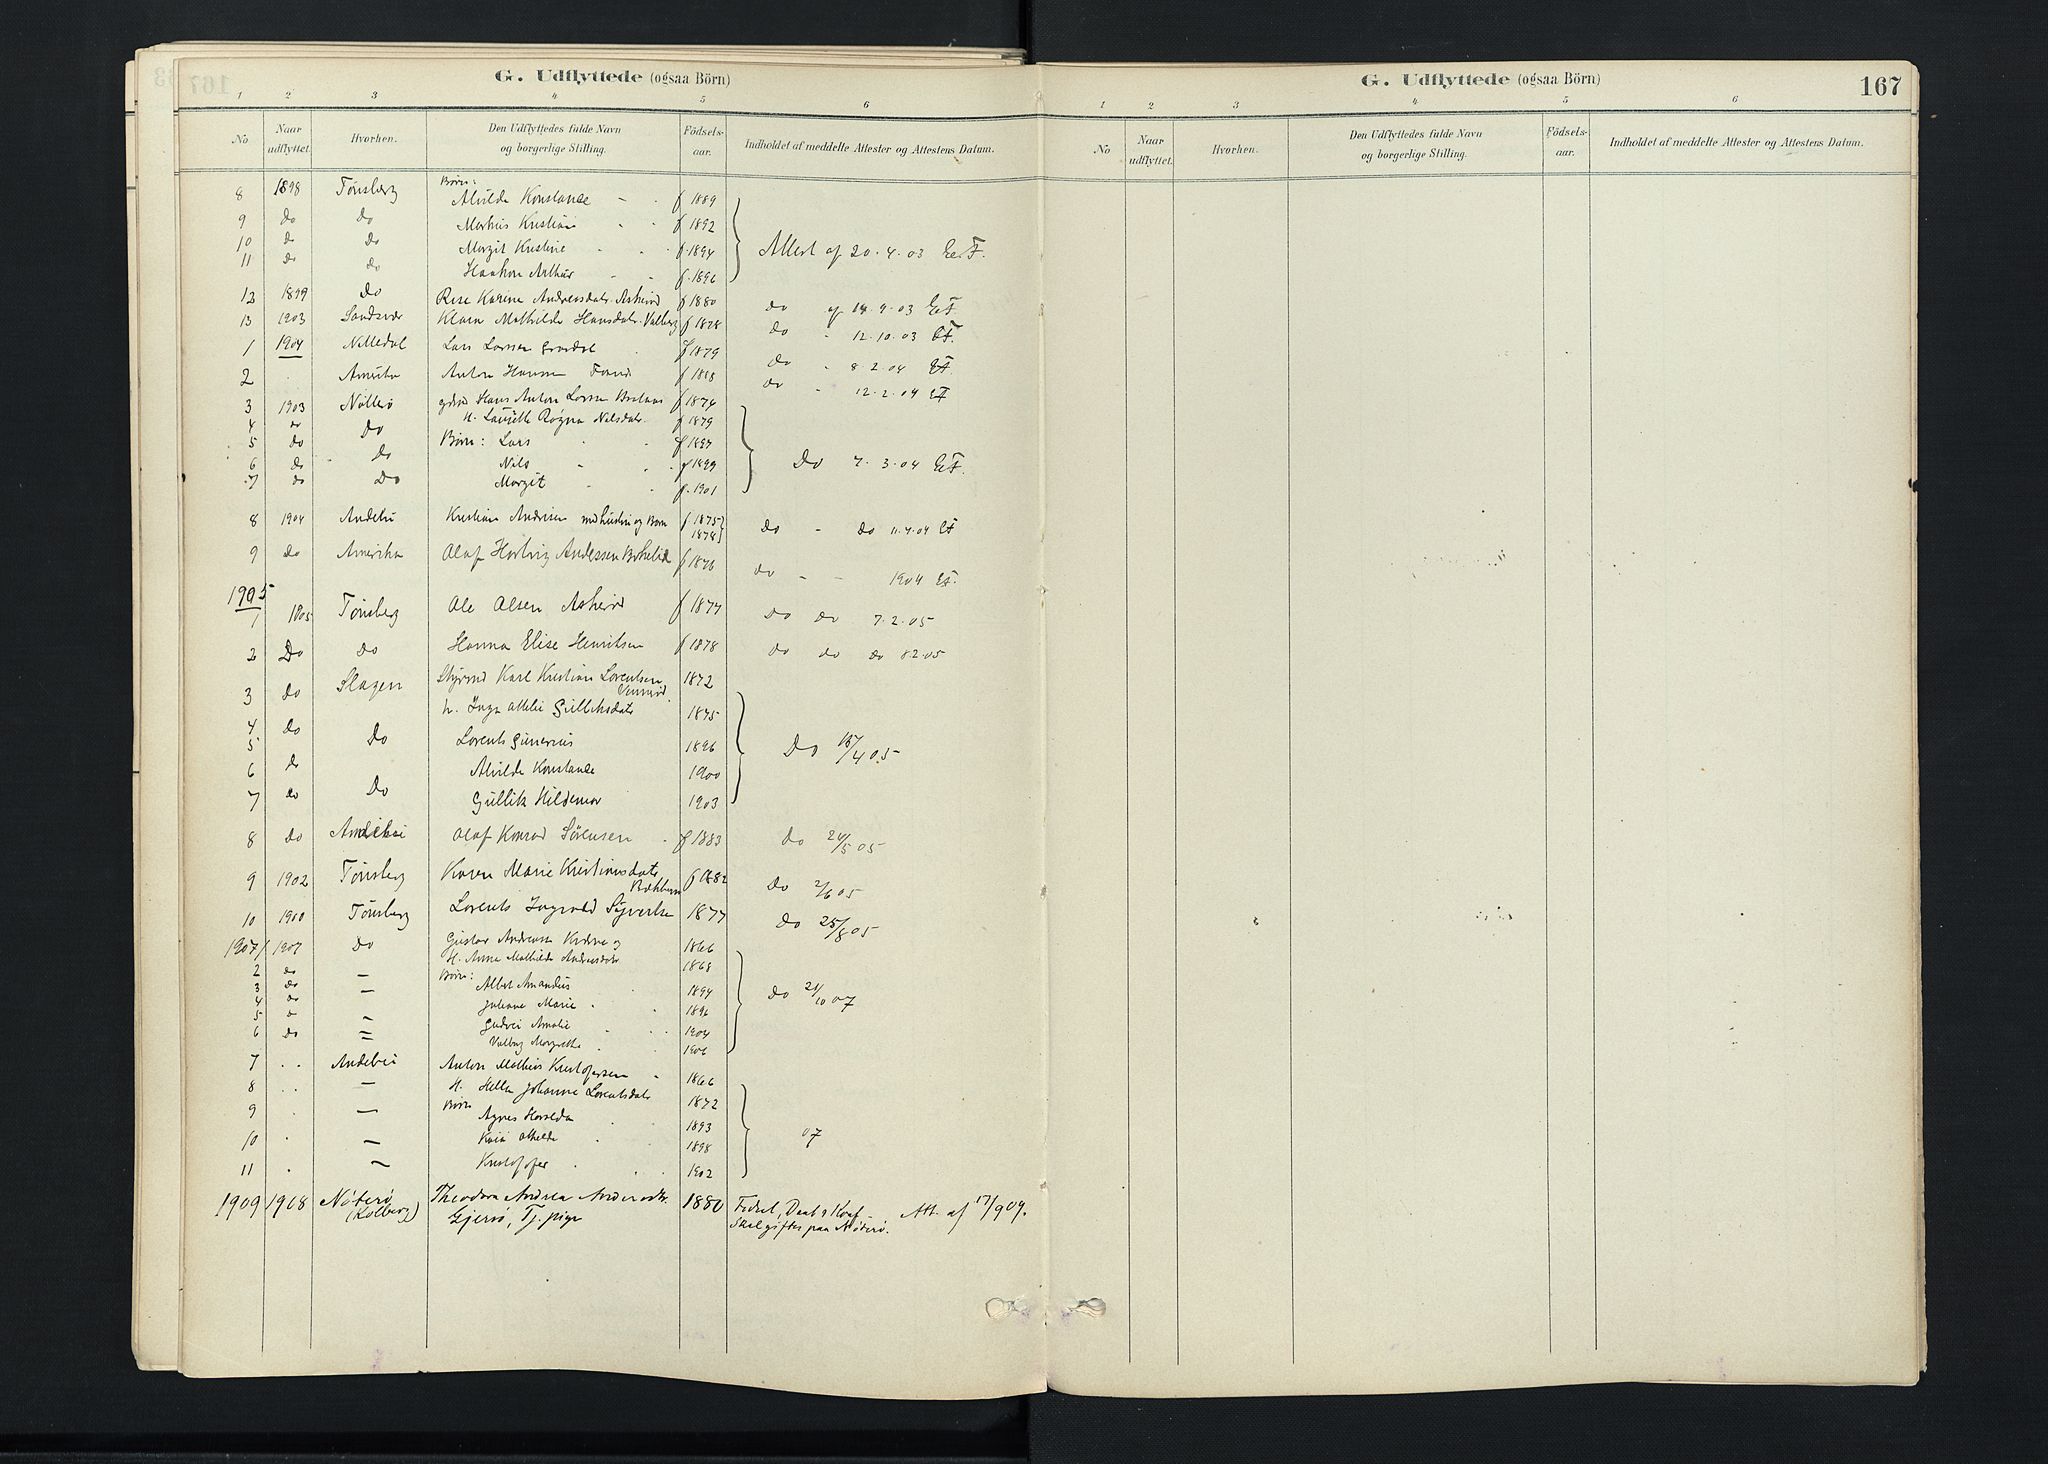 G. Udflyttede (ogsaa Börn)
1 2 3 4 5 6
No Naar udflyttet. Hvorhen. Den Udflyttedes fulde Navn og borgerlige Stilling. Födsels-aar. Indholdet af meddelte Attester og Attestens Datum.
8 1898 Tönsberg Børn: Alvilde Konstance f 1889
9 Do Do Markus Kristian f 1892
10 Do Do Margit Kristine f 1894 Attest af 20.4.03 EF.
11 Do Do Haakon Arthur f. 1896
12 1899 Do Karine Andreasdatr. Askerød f 1880 do af 14.9.03 EF.
13 1903 Sandsvær Klara Mathilde Hansdatr. Valberg f 1878 do " 12.10.03 EF.
1 1904 Nittedal Lars Larsen f 1879 do " 8 2.04 EF
2 Amerika Anton Hansen f 1888 do - 12.2.04 EF
3 1903 Nötterö Hans Anton Larsen f 1874
4 do Do H. Laurette Ragna Nilsdatr. f 1879
5 do Børn: Lars f 1897
6 do Do Nils f 1899 Do 7.3.04 EF.
7 do Do Margit f. 1901
8 1904 Andebu Kristian Andersen med hustru og Børn f 1875 1878 do - do 11.4.04 EF
9 Do Amerika Olaf Hartvig Anderssen f 1876 do - - 1904 EF.
1905
1 1905 Tönsberg Ole Olsen Askerød f 1877 Do do 7.2.05
2 Do Do Hanna Elise Henriksen f 1878 do do do 8.2.05
3 do Slagen Karl Kristian Lorentsen 1872
h. Inga Gulliksdatr 1875
4 Do
5 Do Lorents Gunerius 1896 Do 18/4 05
6 do Alvilde Konstance 1900
7 do Do Gullik Hildemar 1903
8 do Andebu Olaf Konrad Sørensen f 1883 Do 24/5 05
9 1902 Tönsberg Karen Marie Kristiansdatr f 1882 Do 2/6 05
10 1900 Tönsberg Lorents Ingvald 1877 Do 25/8 05
1907/1 1907 Do Gustav Andreassen og 1866
2 do — H. Anna Mathilde Andersdatr 1868
3 do — Børn: Albert Amandus 1894 do 21/10 07
4 do Juliane Marie 1896
5 do — Gudrun Amalie 1904
6 do = Valborg Margrethe 1906
7 Andebu Anton Mathias Kristofersen 1866
8 — H. Hella Johanne Lorentsdatr 1872
9 — Børn Agnes 1893
10 — 1898 07
11 — Kristoffer 1902
1909 1908 Nöterö (Kolberg) Theodora Andrea Andersdtr. Gjersö, Tj. pige 1880 Födsel, Daab & Konf. Skal giftes paa Nöterö. Att. af 17/9 09.
G. Udflyttede (ogsaa Börn) 167
1 2 3 4 5 6
No Naar udflyttet. Hvorhen. Den Udflyttedes fulde Navn og borgerlige Stilling. Födsels-aar. Indholdet af meddelte Attester og Attestens Datum.